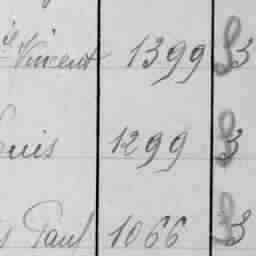 Vincent 1399 3
ouis 1299 3
s Paul 1066 3